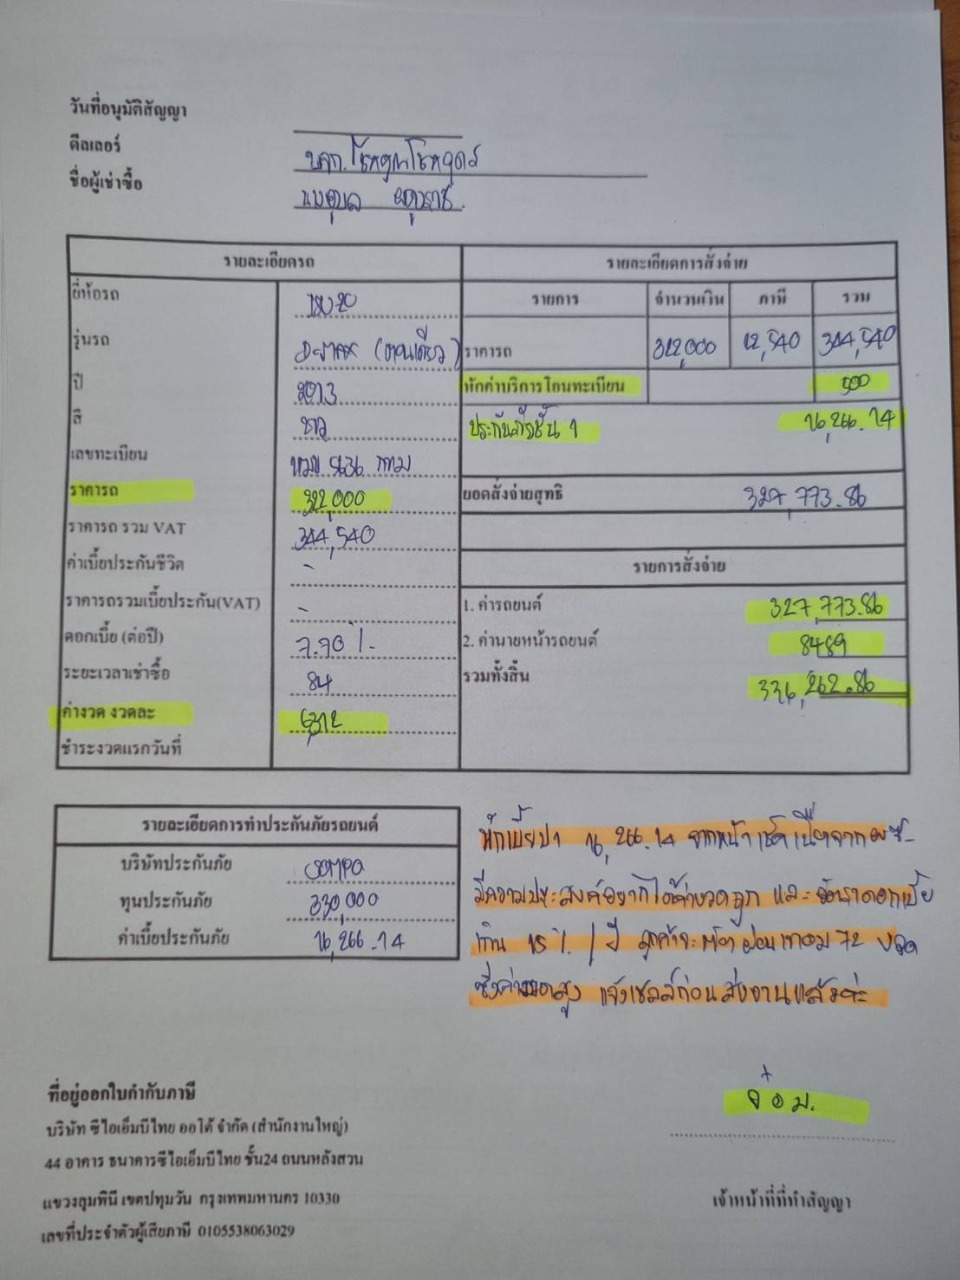 วันที่อนุมัติสัญญา
ดีลเลอร์ บจก.
ชื่อผู้เช่าซื้อ
รายละเอียดรถ
ยี่ห้อรถ
รุ่นรถ (ตอนเดียว)
ปี 2013
สี ขาว
เลขทะเบียน 5636 กทม
ราคารถ 322,000
ราคารถ รวม VAT 344,540
ค่าเบี้ยประกันชีวิต -
ราคารถรวมเบี้ยประกัน(VAT) -
ดอกเบี้ย (ต่อปี) 7.70 %
ระยะเวลาเช่าซื้อ 84
ค่างวด งวดละ 6,312
ชำระงวดแรกวันที่
รายละเอียดการสั่งจ่าย
รายการ จำนวนเงิน ภาษี รวม
ราคารถ 322,000 22,540 344,540
หักค่าบริการโอนทะเบียน 500
ประกันภัยชั้น 1 16,266.14
ยอดสั่งจ่ายสุทธิ 327,773.86
รายการสั่งจ่าย
1. ค่ารถยนต์ 327,773.86
2. ค่านายหน้ารถยนต์ 8489
รวมทั้งสิ้น 336,262.86
รายละเอียดการทำประกันภัยรถยนต์
บริษัทประกันภัย SOMPO
ทุนประกันภัย 330,000
ค่าเบี้ยประกันภัย 16,266.14
หักเบี้ยป1 16,266.14 จากหน้าเช็ค เนื่องจาก
มีความประสงค์อยากได้ค่างวดถูก และ อัตราดอกเบี้ย
เกิน 15 % / ปี ลูกค้าจะต้องผ่อน 72 งวด
ซึ่งค่างวดสูง แจ้งเซลล์ก่อนส่งงานแล้วค่ะ
จ๋อม.
เจ้าหน้าที่ที่ทำสัญญา
ที่อยู่ออกใบกำกับภาษี
บริษัท ซีไอเอ็มบีไทย ออโต้ จำกัด (สำนักงานใหญ่)
44 อาคาร ธนาคารซีไอเอ็มบีไทย ชั้น24 ถนนหลังสวน
แขวงลุมพินี เขตปทุมวัน กรุงเทพมหานคร 10330
เลขที่ประจำตัวผู้เสียภาษี 0105538063029